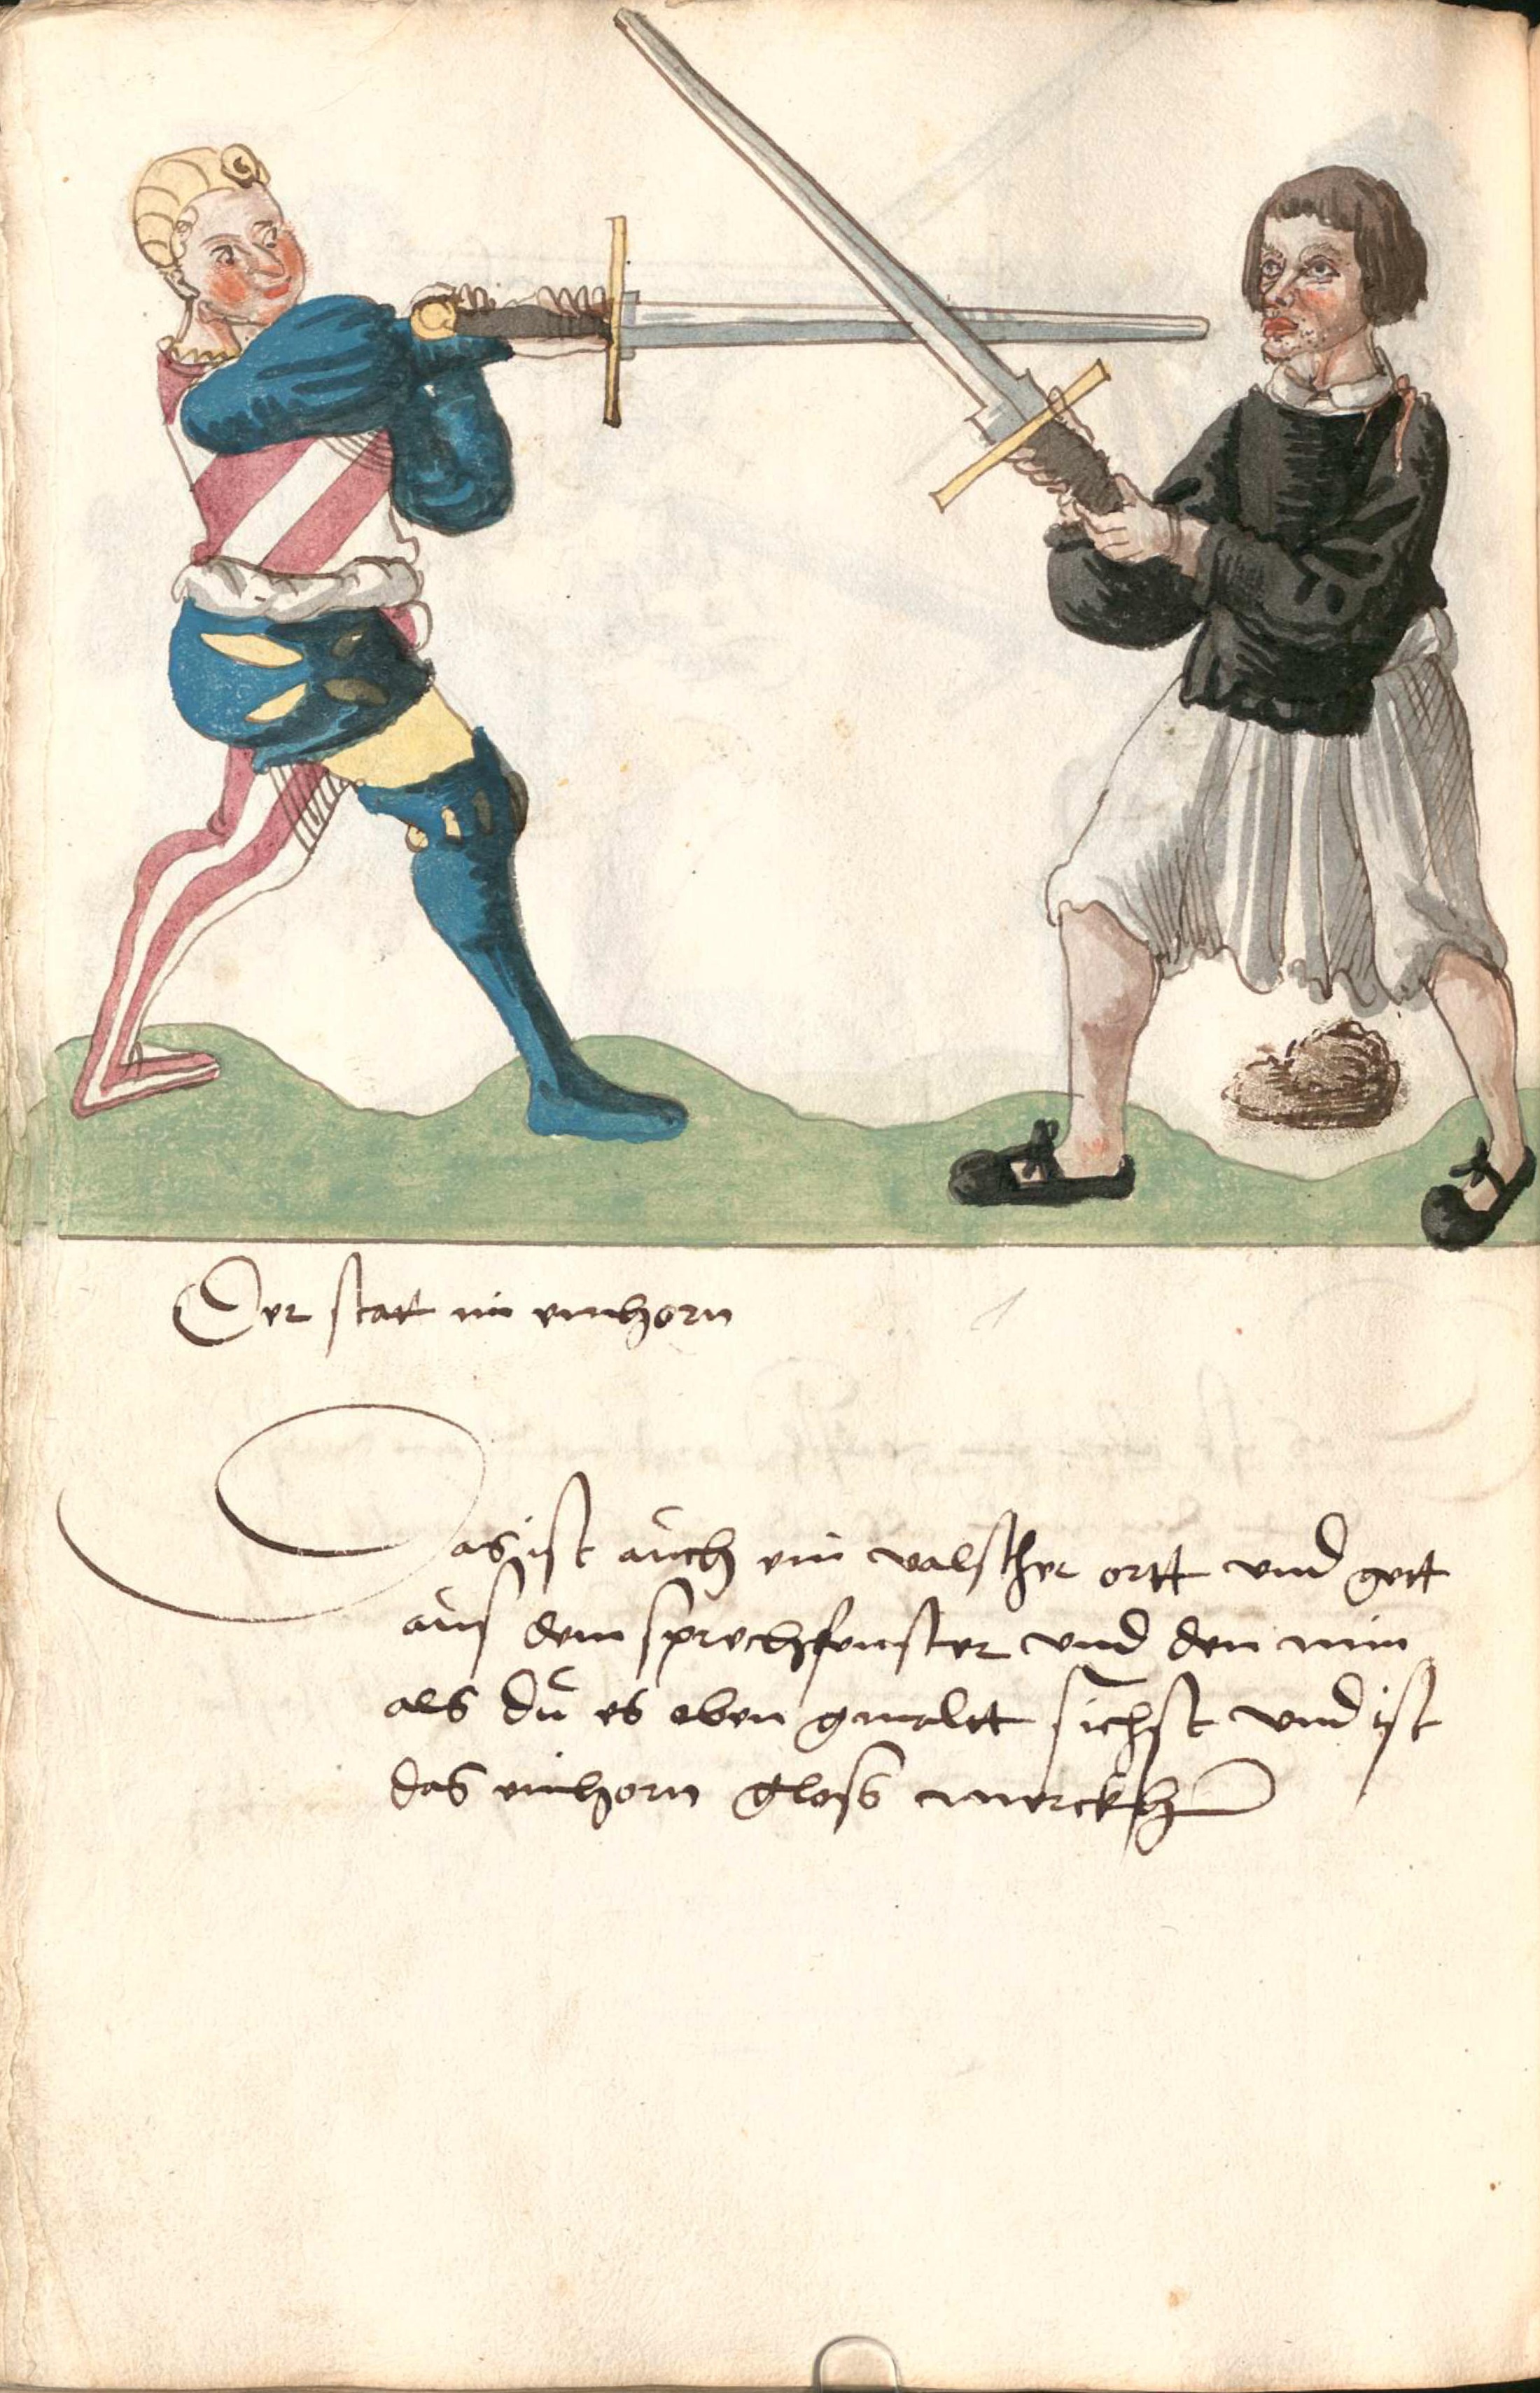 Der statt im einhorn
Das ist auch ein valscher ortt und gett
aus dem sprechfenster und den nim
als du es oben gmaltt sichst und ist
das einhorn gloss merckh